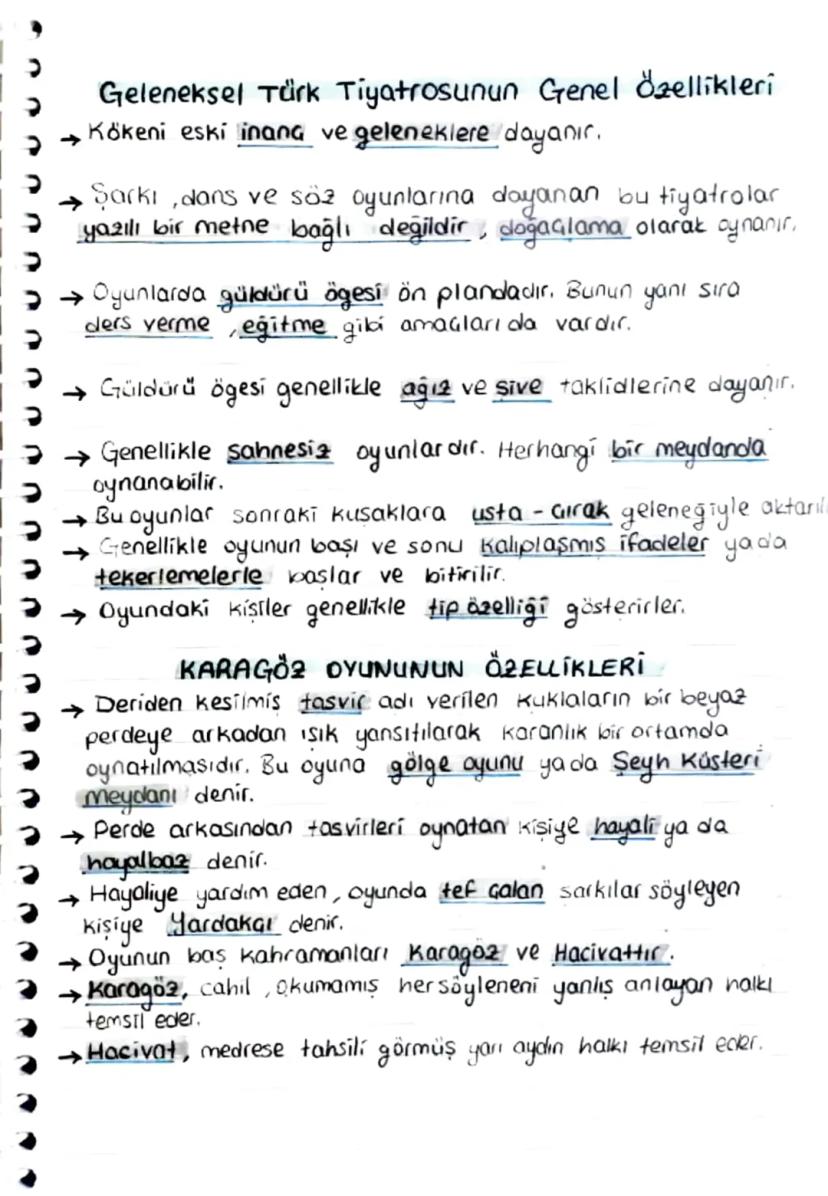 Geleneksel Türk Tiyatrosunun Genel Özellikleri
→ Kökeni eski inanç ve geleneklere dayanır.
→ Şarkı, dans ve söz oyunlarına dayanan bu tiyatrolar
yazılı bir metne bağlı değildir, doğaçlama olarak oynanır.
→ Oyunlarda güldürü ögesi ön plandadır. Bunun yanı sıra
ders verme, eğitme gibi amaçları da vardır.
→ Güldürü ögesi genellikle ağız ve şive taklidlerine dayanır.
→ Genellikle sahnesiz oyunlardır. Herhangi bir meydanda
oynanabilir.
→ Bu oyunlar sonraki kuşaklara usta - çırak geleneğiyle
→ Genellikle oyunun başı ve sonu kalıplaşmış ifadeler ya da
tekerlemelerle başlar ve bitirilir.
→ Oyundaki kişiler genellikle tip özelliği gösterirler.
KARAGÖZ OYUNUNUN ÖZELLİKLERİ
→ Deriden kesilmiş tasvir adı verilen kuklaların bir beyaz
perdeye arkadan ışık yansıtılarak karanlık bir ortamda
oynatılmasıdır. Bu oyuna gölge oyunu ya da Şeyh Küşteri
meydanı denir.
→ Perde arkasından tasvirleri oynatan kişiye hayali ya da
hayalbaz denir.
→ Hayaliye yardım eden, oyunda tef çalan şarkılar söyleyen
kişiye Yardakçı denir.
→ Oyunun baş kahramanları Karagöz ve Hacivattır.
→ Karagöz, cahil, okumamış her söyleneni yanlış anlayan halkı
temsil eder.
→ Hacivat, medrese tahsili görmüş yarı aydın halkı temsil eder.